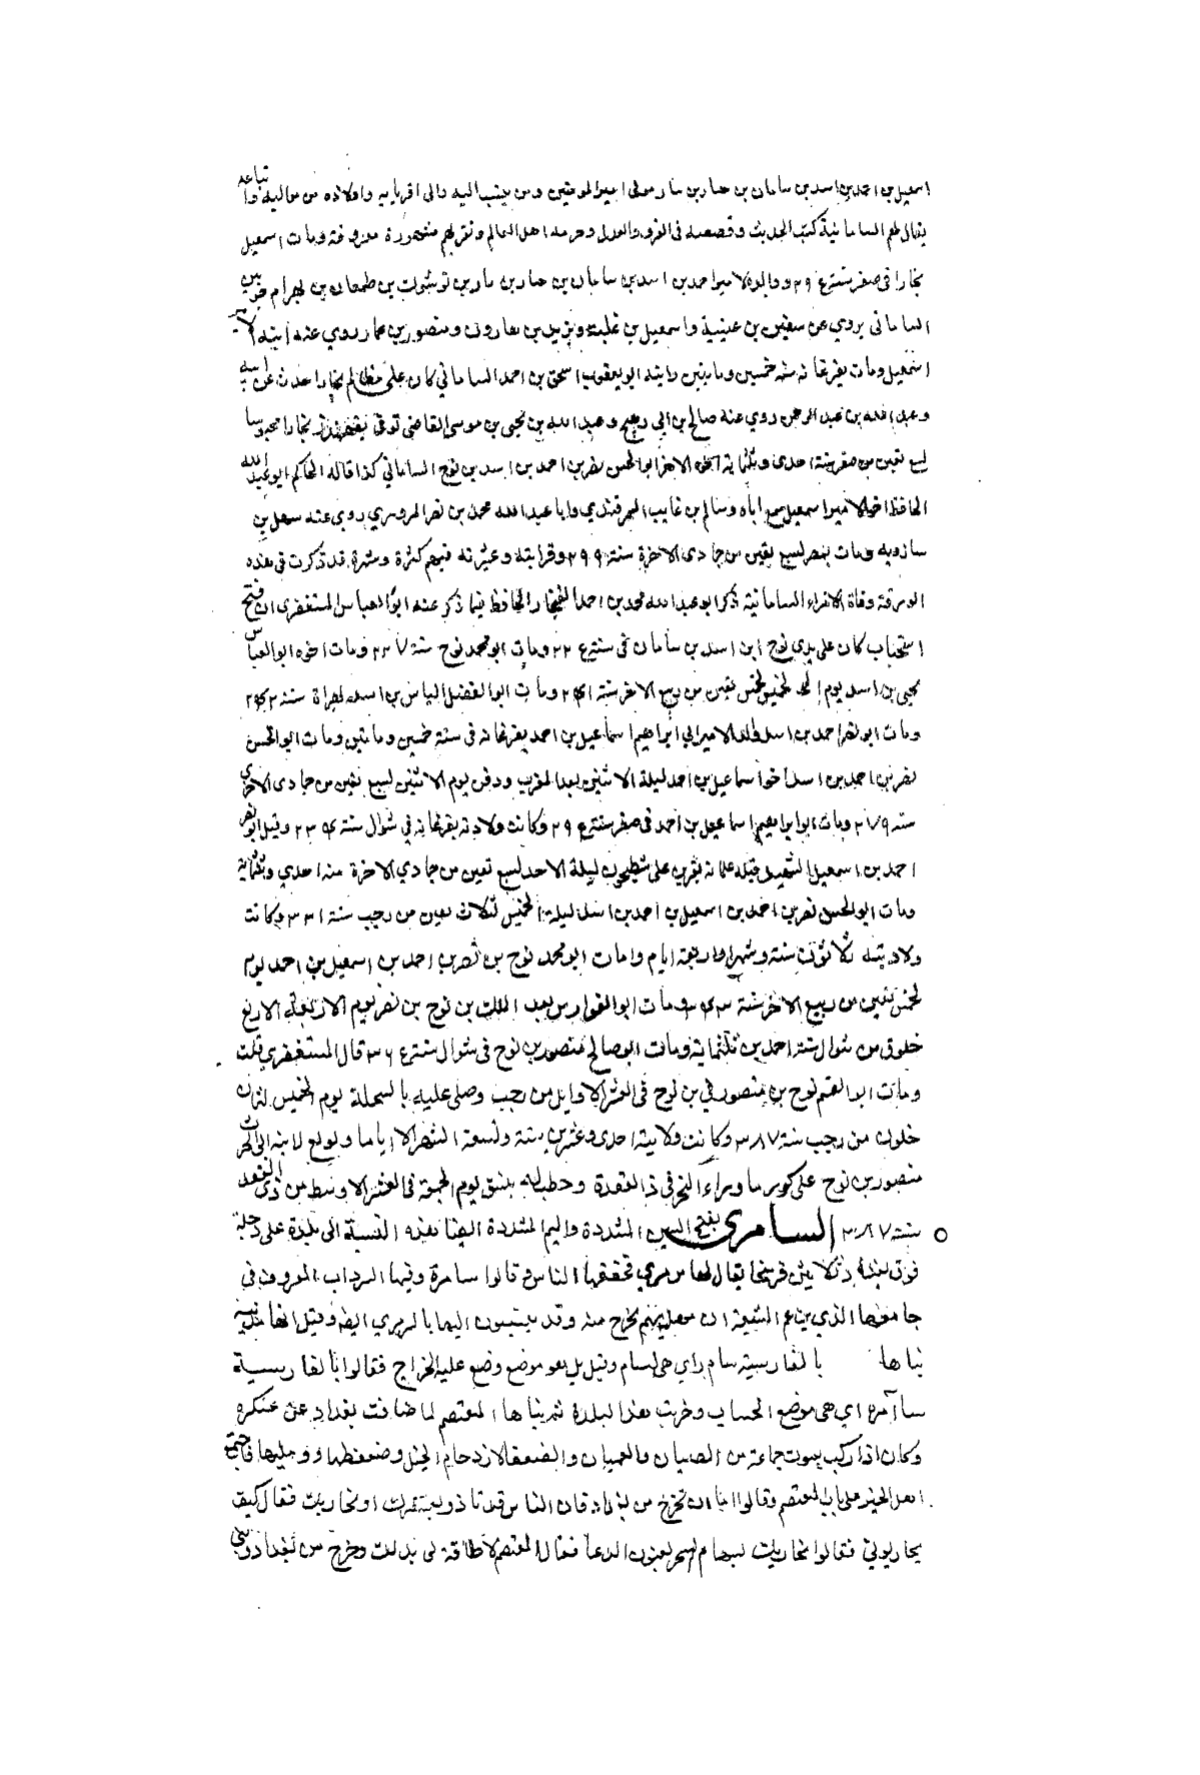 اسمعيل بن احمد بن اسد بن سامان بن حيار بن نيار مولى امير المومنين ومن ينتسب اليه والى اقربايه واولاده من مواليه واتباعه
يقال لهم السامانية كتب الحديث وقصصه في الغزو والعدل وحرمه اهل العالم وتقربهم مشهورة معروفة ومات اسمعيل
بخارا في صفر سنة ووالده الامير احمد بن اسد بن سامان بن حيار بن نيار بن نوشرد بن طمغاث بن بهرام جوبين
الساماني يروي عن سفين بن عيينة واسمعيل بن علية ويزيد بن هارون ومنصور بن عمار روي عنه ابنه الامير
اسمعيل ومات بفرغانه سنه خمسين ومايتين وابنه ابو يعقوب اسحق بن احمد الساماني كان على مظالم بخارا حدث عن ابيه
وعبد الله بن عبد الرحمن روي عنه صالح بن ابي رميح وعبد الله بن يحيى بن موسى القاضي توفى بقهندز بخارا محبوسا
لسبع بقين من صفر سنة احدى وثلثماية اخوه الاخر ابو الحسن نصر بن احمد بن اسد بن نوح الساماني كذا قاله الحاكم ابو عبد الله
الحافظ اخو الامير اسمعيل سمع اباه وسالم بن غالب السمرقندي وابا عبد الله محمد بن نصر المروزي روى عنه سهل بن
شاذويه ومات بنصر لسبع بقين من جمادى الاخرة سنة وقرابته وعشرته فيهم كثرة وشهرة قد ذكرت في هذه
الورقة وفاة الامراء السامانية ذكر ابو عبد الله محمد بن احمد الغنجار الحافظ فيما ذكر عنه ابو العباس المستغفري ان فتح
اسفيجاب كان على يدي نوح ابن اسد بن سامان في سنة ومات ابو محمد نوح سنة ومات اخوه ابو العباس
يحيى بن اسد يوم لخمس بقين من ربيع الاخر سنة ومات ابو الفضل الياس بن اسد بهراة سنة
ومات ابو نصر احمد بن اسد والد الامير ابي ابراهيم اسماعيل بن احمد بفرغانه في سنة خمسين ومايتين ومات ابو الحسن
نصر بن احمد بن اسد اخو اسماعيل بن احمد ليلة الاثنين بعد المغرب ودفن يوم الاثنين لسبع بقين من جمادى الاخرى
سنه ٢٧٩ ومات ابو ابراهيم اسماعيل بن احمد في صفر سنة وكانت ولادته بفرغانه في شوال سنة وقتل ابو نصر
احمد بن اسمعيل الشهيد قتله غلمانه بفربر على شط جيحون ليلة الاحد لسبع بقين من جمادي الاخرة سنه احدي وثلثماية
ومات ابو الحسن نصر بن احمد بن اسمعيل بن احمد بن اسد ليلة الخميس لثلاث بقين من رجب سنة ٣٣١ وكانت
ولايته ثلاثون سنة وشهرا واربعة ايام وامات ابو محمد نوح بن نصر بن احمد بن اسمعيل بن احمد يوم
لخمس بقين من ربيع الاخر سنة ومات ابو الفوارس عبد الملك بن نوح بن نصر يوم الاربعاء الاربع
خلون من شوال سنة احمد بن ثلثماية ومات ابو صالح منصور بن نوح في شوال سنة قال المستغفري قلت
ومات ابو القسم نوح بن منصور في بن نوح في العشر الاوايل من رجب وصلى عليه بالسهلة يوم الخميس لثمان
خلون من رجب سنة ٣٨٧ وكانت ولايته احدى وعشرين سنة وتسعة اشهر الا اياما وبويع لابنه ابي الحرث
منصور بن نوح على كور ما وراء النهر في ذا القعدة وخطب له بنسف يوم الجمعة في العشر الاوسط من ذي القعدة
سنة ٣٨٧ السامري بفتح السين المشددة والميم المشددة ايضا هذه النسبة الى بلدة على دجلة
فوق بغداد بثلاثين فرسخا يقال لها سر من رى فخففها الناس وقالوا سامرة وفيها السرداب المعروف في
جامعها الذي يزعم الشيعة ان مهديهم يخرج منه وقد ينتسبون اليها بالسرمري ايضا وقيل انها مدينة
بناها بالفارسية سام راي هي لسام وقيل بل هو موضع وضع عليه الخراج فقالوا بالفارسية
ساآمره اي هي موضع الحساب وخربت هذا البلدة ثم بناها المعتصم لما ضاقت بغداد عن عسكره
وكان اذا ركب يموت جماعة من الصبيان والعميان والضعفا لازدحام الخيل وضغطها فاجتمع
اهل الخير على باب المعتصم وقالوا اما ان تخرج من بغداد فان الناس قد تاذوا بعسكرك او نحاربك فقال كيف
تحاربوني فقالوا نحاربك بسهام السحر يعنون الدعا فقال المعتصم لا طاقة لي بذلك وخرج من بغداد وبنى